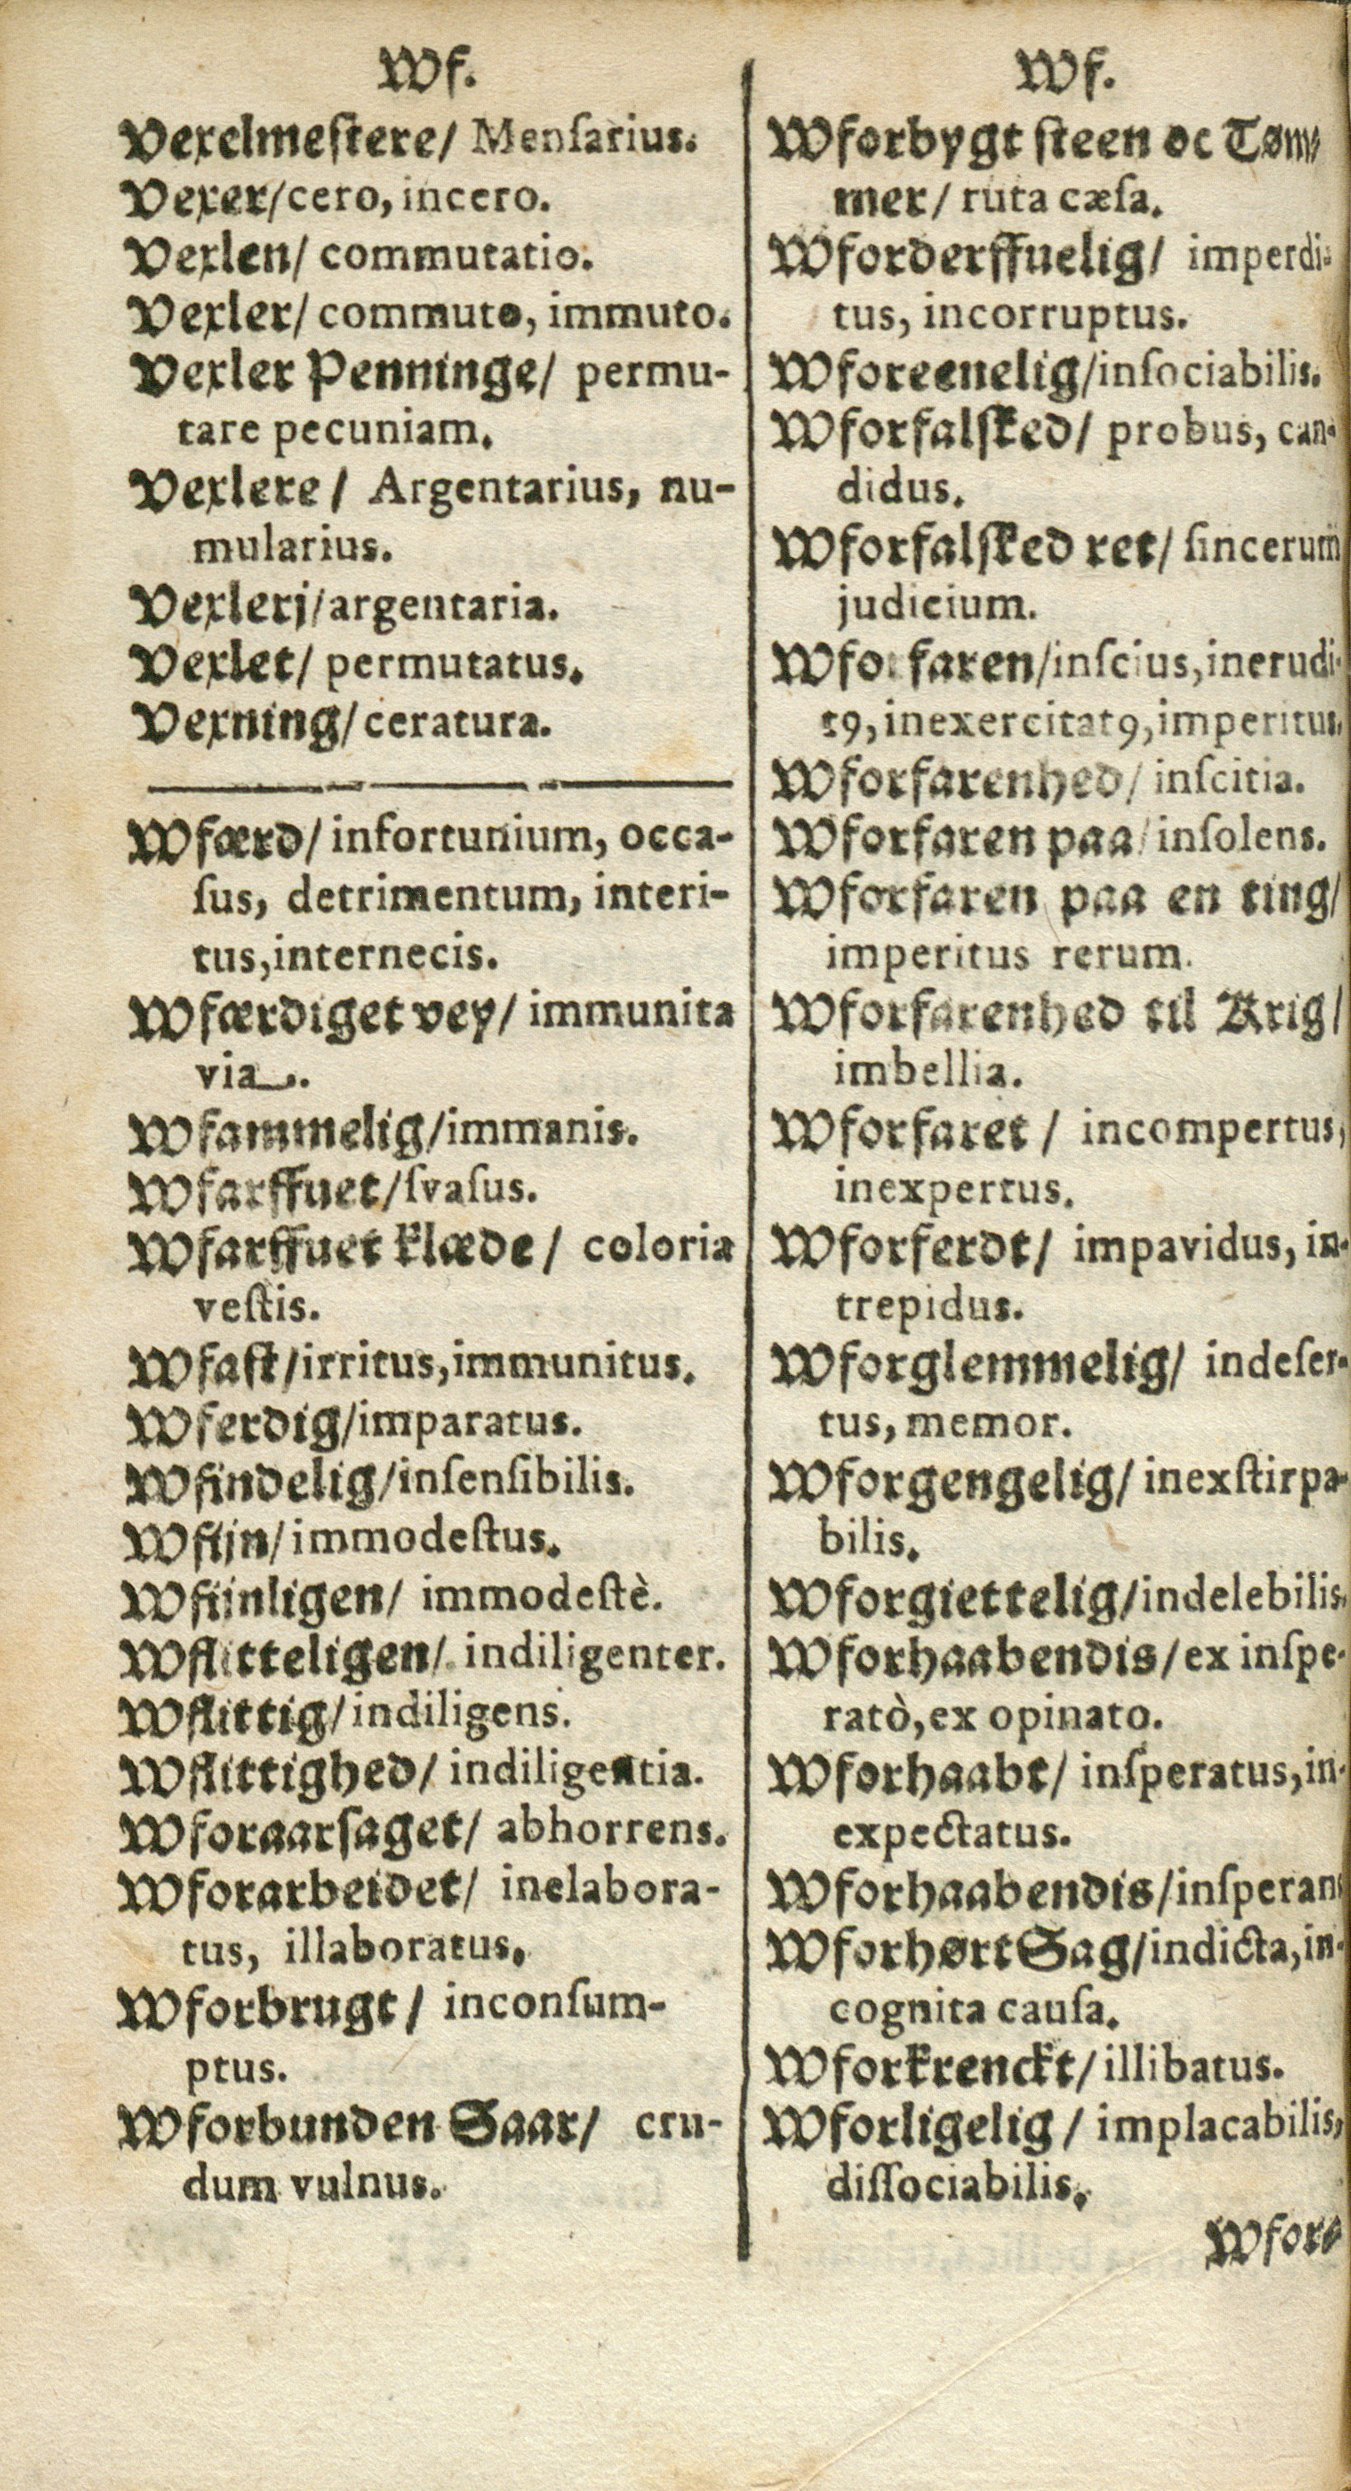 Wf.
Vexelmeſtere/ Menſarius.
Vexer/cero, incero.
Vexlen/ commutatio.
Vexler/ commuto, immuto.
Vexler Penninge/ permu-
tare pecuniam.
Vexlere/ Argentarius, nu-
mularius.
Vexlerj/argentaria.
Vexlet/ permutatus.
Vexning/ceratura.
Wfærd/ infortunium, occa-
ſus, detrimentum, interi-
tus,internecis.
Wfærdiget vey/ immunita
via.
Wfammelig/immanis.
Wfarffuet/ſvaſus.
Wfarffuet klæde/ coloria
veſtis.
Wfaſt/irritus,immunitus.
Wferdig/imparatus.
Wfindelig/inſenſibilis.
Wfijn/immodeſtus.
Wfijnligen/ immodeſtè.
Wflitteligen/ indiligenter.
Wflittig/indiligens.
Wflittighed/ indiligentia.
Wforaarſaget/ abhorrens.
Wforarbeidet/ inelabora-
tus, illaboratus.
Wforbrugt/ inconſum-
ptus.
Wforbunden Saar/ cru-
dum vulnus.
Wf.
Wforbygt ſteen oc Tøm-
mer/ ruta cæſa.
Wforderffuelig/ imperdi-
tus, incorruptus.
Wforeenelig/inſociabilis.
Wforfalſked/ probus, can-
didus.
Wforfalſked ret/ ſincerum
judicium.
Wforfaren/inſcius,inerudi-
t9,inexercitat9,imperitus.
Wforfarenhed/ inſcitia.
Wforfaren paa/inſolens.
Wforfaren paa en ting/
imperitus rerum.
Wforfarenhed til Krig/
imbellia.
Wforfaret/ incompertus,
inexpertus.
Wforferdt/ impavidus, in-
trepidus.
Wforglemmelig/ indeſer-
tus, memor.
Wforgengelig/ inexſtirpa-
bilis.
Wforgiettelig/indelebilis.
Wforhaabendis/ex inſpe-
ratò,ex opinato.
Wforhaabt/ inſperatus,in-
expectatus.
Wforhaabendis/inſperans
Wforhørt Sag/indicta,in-
cognita cauſa.
Wforkrenckt/illibatus.
Wforligelig/ implacabilis,
diſſociabilis.
Wfor-